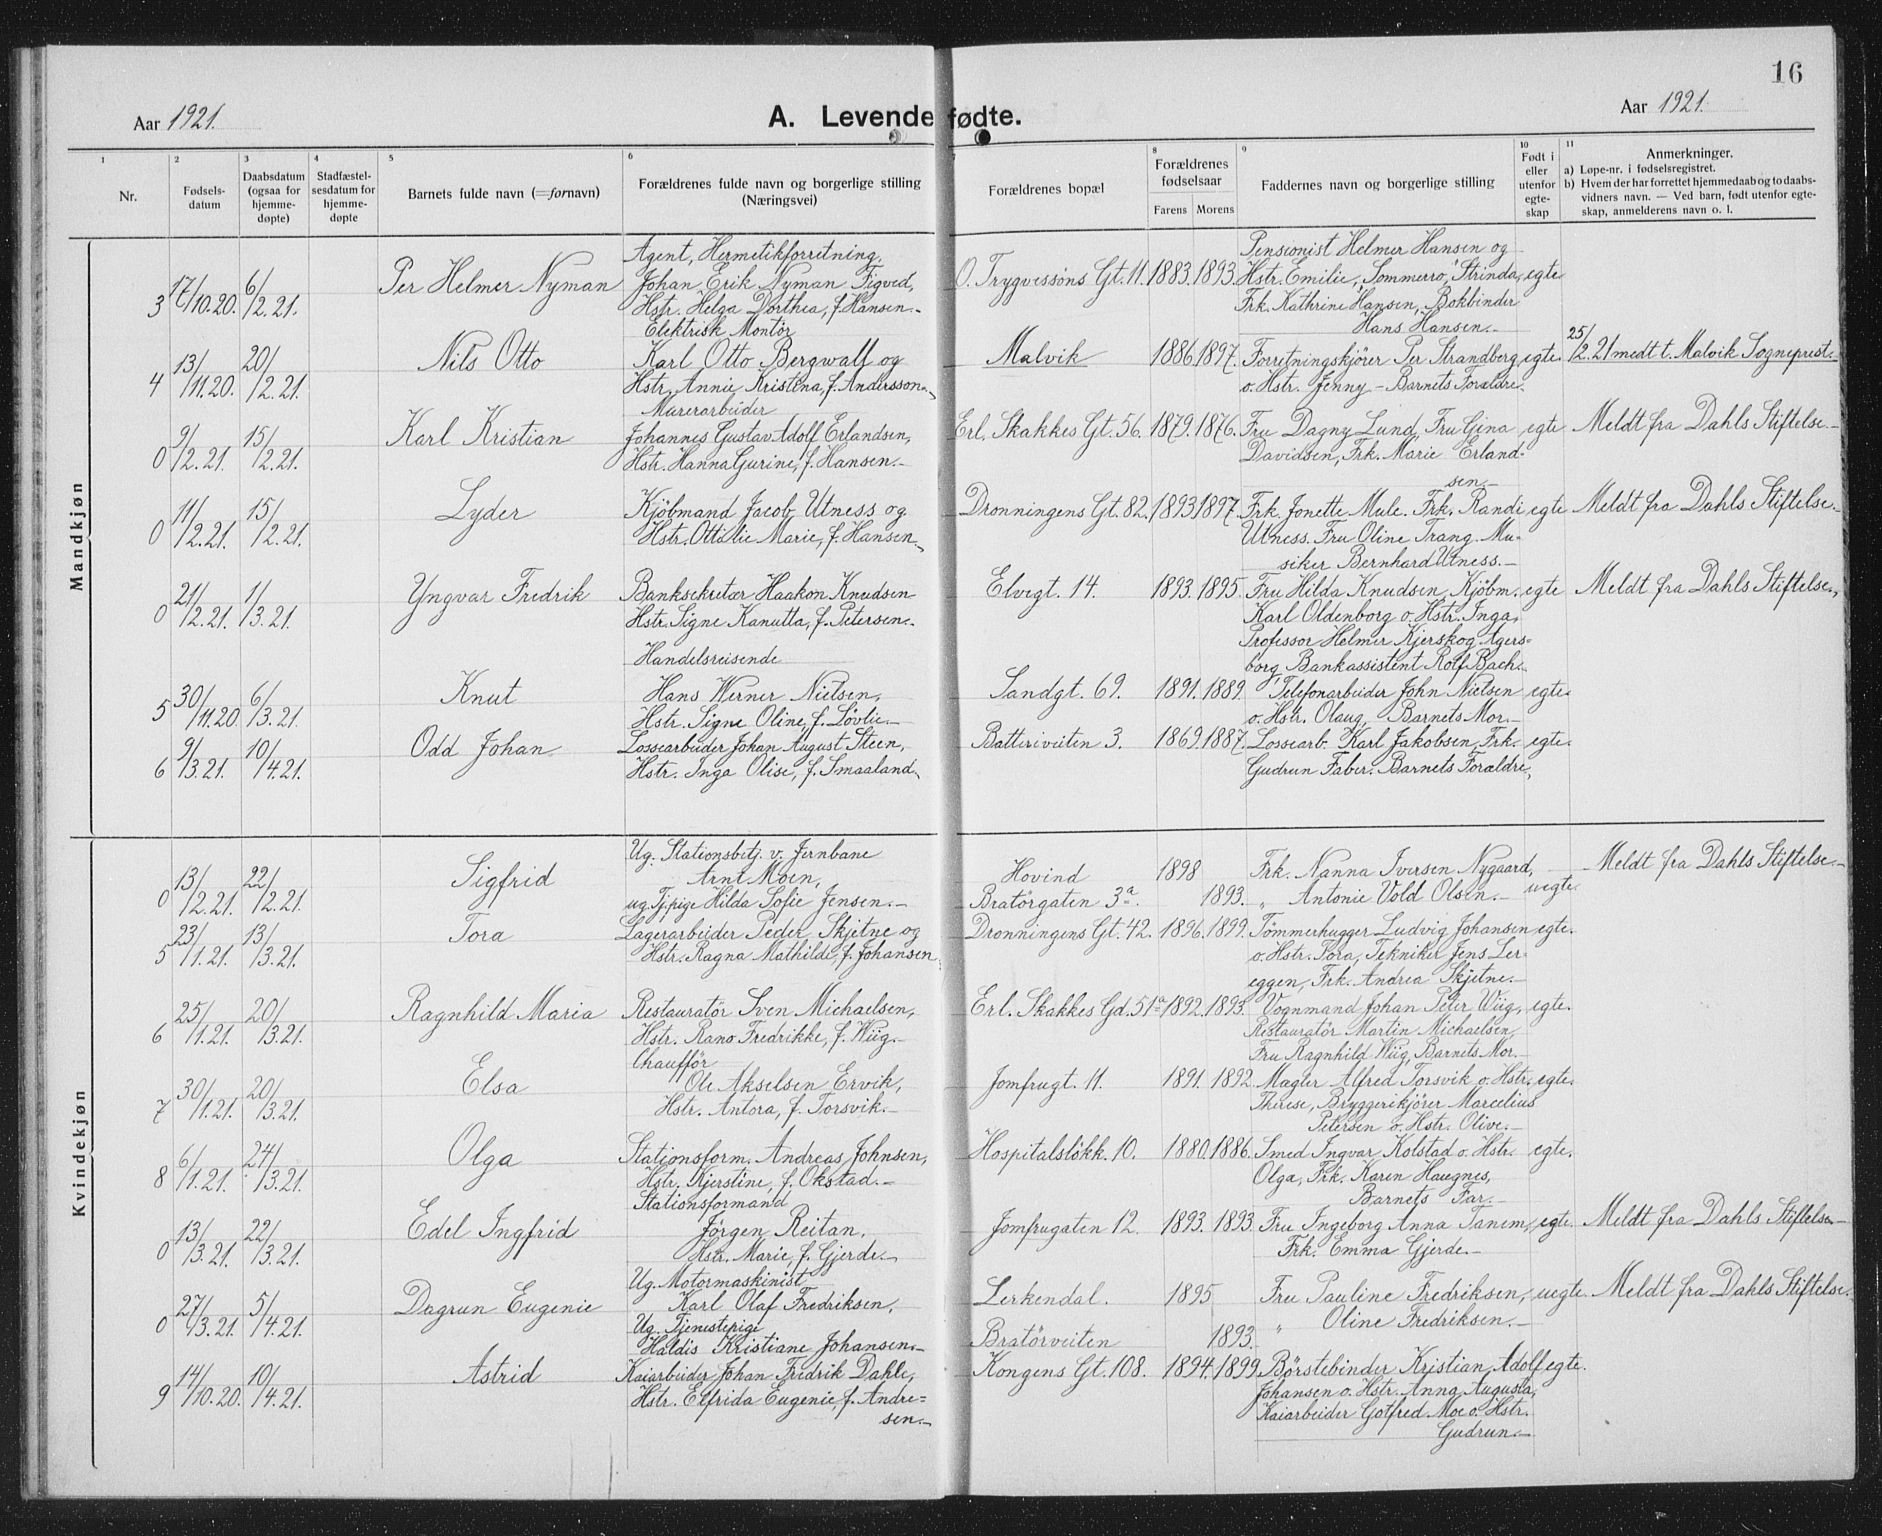 16
Aar 1921.
A. Levende fødte.
Aar 1921.
1
Nr.
2
Fødsels-
datum
3
Daabsdatum
(ogsaa for
hjemme-
døpte)
4
Stadfæstel-
sesdatum for
hjemme-
døpte
5
Barnets fulde navn (=fornavn)
6
Forældrenes fulde navn og borgerlige stilling
(Næringsvei)
7
Forældrenes bopæl
8
Forældrenes
fødselsaar
Farens Morens
9
Faddernes navn og borgerlige stilling
10
Født i
eller
utenfor
egte-
skap
11
Anmerkninger.
a) Løpe-nr. i fødselsregistret.
b) Hvem der har forrettet hjemmedaab og to daabs-
vidners navn. — Ved barn, født utenfor egte-
skap, anmelderens navn o. l.
Mandkjøn
3 17/10.20. 6/2.21. Per Helmer Nyman
Agent, Hermetikforretning,
Johan Erik Nyman Figved,
Hstr. Helga Dorthea, f. Hansen.-
O. Trygvessöns Gt. 11. 1883. 1893.
Pensionist Helmer Hansen og
Hstr. Emilie, Sommerro, Strinda, egte
Frk. Kathrine Hansen, Bokbinder
Hans Hansen.-
4 13/11.20. 20/2.21. Nils Otto
Elektrisk Montör
Karl Otto Bergwall og
Hstr. Annie Kristina, f. Andersson.-
Malvik 1886. 1897.
Forretningskjörer Per Strandberg egte. 25/2.21 medt t. Malvik Sogneprest.-
o. Hstr. Jenny - Barnets Forældre.
0 9/2.21. 15/2.21. Karl Kristian
Murerarbeider
Johannes Gustav Adolf Erlandsen,
Hstr. Hanna Gurine, f. Hansen.-
Erl. Skakkes Gt. 56. 1879. 1876.
Fru Dagny Lund, Fru Gina egte Meldt fra Dahls Stiftelse.-
Davidsen, Frk. Marie Erland-
sen.-
0 11/2.21. 15/2.21. Lyder
Kjöbmand Jacob Utness og
Hstr. Ottilie Marie, f. Hansen.
Dronningens Gt. 82. 1893 1897.
Frk. Jonette Mule. Frk. Randi egte Meldt fra Dahls Stiftelse.-
Utness. Fru Oline Trang. Mu-
siker Bernhard Utness.-
0 21/2.21. 1/3.21. Yngvar Fredrik
Banksekretær Haakon Knudsen
Hstr. Signe Kanutta, f. Petersen.
Elvegt. 14. 1893. 1895.
Fru Hilda Knudsen, Kjöbm. egte Meldt fra Dahls Stiftelse.
Karl Oldenborg o. Hstr. Inga,
Professor Helmer Kjerskog Agers-
borg, Bankassistent Rolf Bach.
5 30/11.20. 6/3.21. Knut
Handelsreisende
Hans Werner Nielsen,
Hstr. Signe Oline, f. Lövlie.-
Sandgt. 69. 1891. 1889.
Telefonarbeider John Nielsen egte.
o. Hstr. Olaug, Barnets Mor.-
6 9/3.21. 10/4.21. Odd Johan
Lossearbeider Johan August Steen,
Hstr. Inga Olise, f. Smaaland.
Batteriveiten 3. 1869. 1887.
Lossearb. Karl Jakobsen, Frk. egte.
Gudrun Faber. Barnets Forældre.
Kvindekjøn
0 13/2.21. 22/2.21. Sigfrid
Ug. Stationsbetj. v. Jernbane
Arnt Moen,
ug. Tj.pige Hilda Sofie Jensen.-
Hovind 1898
Bratörgaten 3a. 1893.
Frk. Nanna Iversen Nygaard, uegte. Meldt fra Dahls Stiftelse.-
" Antonie Vold Olsen.-
5 23/1.21. 13/3.21. Tora
Lagerarbeider Peder Skjetne og
Hstr. Ragna Mathilde, f. Johansen
Dronningens Gt. 42. 1896. 1899.
Tömmerhugger Ludvig Johansen egte.
o. Hstr. Tora, Tekniker Jens Ler-
eggen, Frk. Andrea Skjetne.-
6 25/1.21. 20/3.21. Ragnhild Maria
Restauratör Sven Michaelsen,
Hstr. Rano Fredrikke, f. Wiig.-
Erl. Skakkes Gd. 51a 1892. 1893.
Vognmand Johan Peter Wiig, egte.
Restauratör Martin Michaelsen,
Fru Ragnhild Wiig, Barnets Mor.-
7 30/1.21. 20/3.21. Elsa
Chaufför
Ole Akselsen Ervik,
Hstr. Antora, f. Torsvik.-
Jomfrugt. 11. 1891. 1892.
Magler Alfred Torsvik o. Hstr. egte.
Therese, Bryggerikjörer Marcelius
Petersen o. Hstr. Olive.-
8 6/1.21. 24/3.21. Olga
Stationsform. Andreas Johnsen,
Hstr. Kjerstine, f. Okstad.-
Hospitalslökk. 10. 1880. 1886.
Smed Ingvar Kolstad o. Hstr. egte.
Olga, Frk. Karen Haugnes,
Barnets Far.-
0 13/3.21. 22/3.21. Edel Ingfrid
Stationsformand
Jörgen Reitan,
Hstr. Marie, f. Gjerde.-
Jomfrugaten 12. 1893. 1893.
Fru Ingeborg Anna Tanem, egte. Meldt fra Dahls Stiftelse.-
Frk. Emma Gjerde.-
0 27/3.21. 5/4.21. Dagrun Eugenie
Ug. Motormaskinist
Karl Olaf Fredriksen,
Ug. Tjenestepige
Haldis Kristiane Johansen.-
Lerkendal. 1895
Bratörveiten 1893.
Fru Pauline Fredriksen, uegte. Meldt fra Dahls Stiftelse.
" Oline Fredriksen.-
9 14/10.20. 10/4.21. Astrid
Kaiarbeider Johan Fredrik Dahle,
Hstr. Elfrida Eugenie, f. Andre-
sen.-
Kongens Gt. 108. 1894. 1899.
Börstebinder Kristian Adolf egte.
Johansen o. Hstr. Anna Augusta,
Kaiarbeider Gotfred Moe o. Hstr.
Gudrun.-